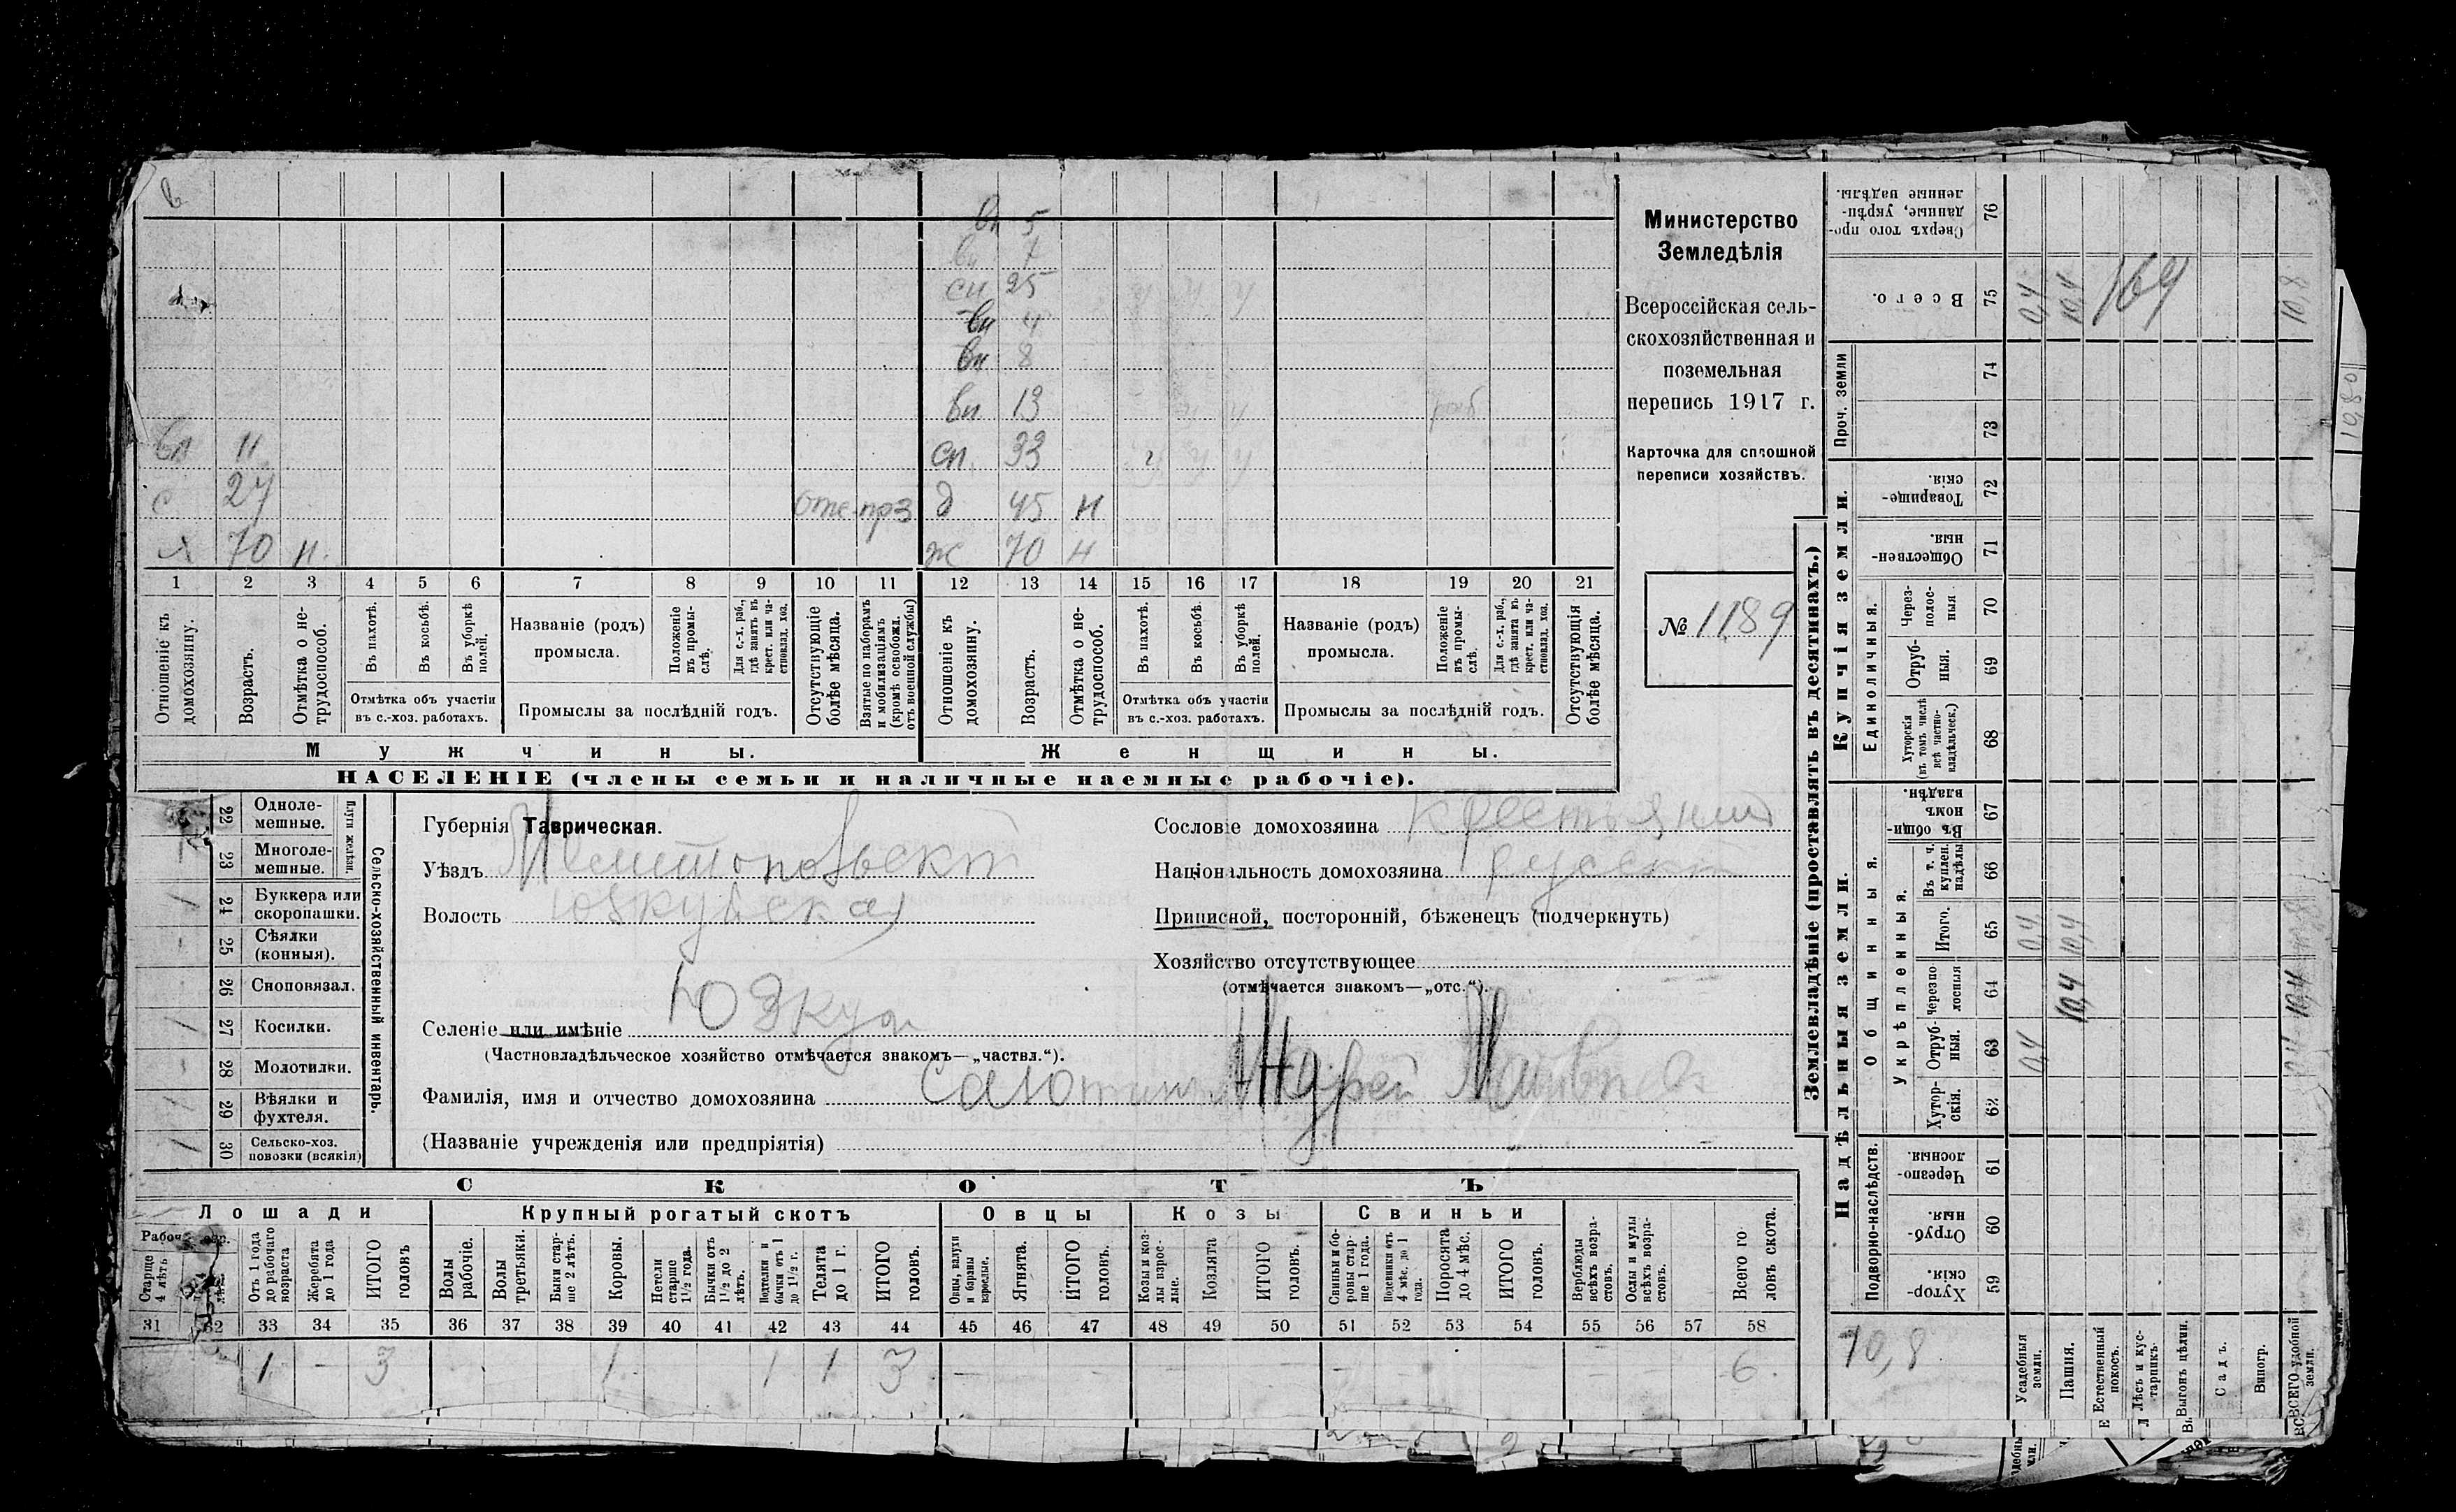 вн 5
вн 7
сн 25 у у у
вн 4
вн 8
вн 13 у у раб
вн 11 сн. 33 у у у
с 27 отс прз д 45 н
х 70 н. ж 70 н
1 2 3 4 5 6 7 8 9 10 11 12 13 14 15 16 17 18 19 20 21
Отношеніе къ домохозяину.
Возрастъ.
Отмѣтка о не-трудоспособ.
Въ пахотѣ.
Въ косьбѣ.
Въ уборкѣ полей.
Отмѣтка объ участіи
въ с.-хоз. работахъ.
Названіе (родъ)
промысла.
Положеніе въ промы-слѣ.
Для с.-х. раб., гдѣ занятъ въ крест. или ча-стновлад. хоз.
Промыслы за послѣдній годъ.
Отсутствующіе болѣе мѣсяца.
Взятые по наборамъ и мобилизаціямъ (кромѣ освобожд. отъ военной службы)
Отношеніе къ домохозяину.
Возрастъ.
Отмѣтка о не-трудоспособ.
Въ пахотѣ.
Въ косьбѣ.
Въ уборкѣ полей.
Отмѣтка объ участіи
въ с.-хоз. работахъ.
Названіе (родъ)
промысла.
Положеніе въ промы-слѣ.
Для с.-х. раб., гдѣ занята въ крест. или ча-стновлад. хоз.
Промыслы за послѣдній годъ.
Отсутствующія болѣе мѣсяца.
Мужчины.
Женщины.
НАСЕЛЕНІЕ (члены семьи и наличные наемные рабочіе).
Министерство
Земледѣлія
Всероссійская сель-
скохозяйственная и
поземельная
перепись 1917 г.
Карточка для сплошной
переписи хозяйствъ.
№ 1189
Сельско-хозяйственный инвентарь.
Плуги желѣзн.
22 Одноле-
мешные.
23 Многоле-
мешные.
1 24 Буккера или
скоропашки.
- 25 Сѣялки
(конныя).
- 26 Сноповязал.
1 27 Косилки.
- 28 Молотилки.
1 29 Вѣялки и
фухтеля.
1 30 Сельско-хоз.
повозки (всякія)
Губернія Таврическая.
Уѣздъ Мелитопольскій
Волость Юзкуйская
Селеніе или имѣніе Юзкуи
(Частновладѣльческое хозяйство отмѣчается знакомъ—„частвл.“).
Фамилія, имя и отчество домохозяина
(Названіе учрежденія или предпріятія)
Сословіе домохозяина крестьянинъ
Національность домохозяина русскій
Приписной, посторонній, бѣженецъ (подчеркнуть)
Хозяйство отсутствующее
(отмѣчается знакомъ—„отс.“).
СКОТЪ
Лошади
Крупный рогатый скотъ
Овцы
Козы
Свиньи
Старше 4 лѣтъ
Отъ 1 года до рабочаго возраста
Жеребята до 1 года
ИТОГО головъ
Волы рабочіе.
Волы третьяки.
Быки стар-ше 2 лѣтъ.
Коровы.
Нетели старше 1½ года.
Бычки отъ 1½ до 2 лѣтъ.
Подтелки и бычки отъ 1 до 1½ г.
Телята до 1 г.
ИТОГО головъ.
Овцы, валухи и бараны взрослые.
Ягнята.
ИТОГО головъ.
Козы и коз-лы взрос-лые.
Козлята
ИТОГО головъ.
Свиньи и бо-ровы стар-ше 1 года.
Подсвинки отъ 4 мѣс. до 1 года.
Поросята до 4 мѣс.
ИТОГО головъ.
Верблюды всѣхъ возра-стовъ.
Ослы и мулы всѣхъ возра-стовъ.
Всего го-ловъ скота.
31 32 33 34 35 36 37 38 39 40 41 42 43 44 45 46 47 48 49 50 51 52 53 54 55 56 57 58
1 - 3 1 1 1 3 - - - 6.
Землевладѣніе (проставлять въ десятинахъ.)
Надѣльныя земли.
Купчія земли.
Проч. земли
Подворно-наслѣдств.
Общинныя.
Укрѣпленныя.
Единоличныя.
76 Сверхъ того про-данные, укрѣп-ленные надѣлы.
75 Всего. 0,4 10,4 10,8
169
74
73
72 Товарище-скія.
71 Обществен-ныя.
70 Через-полос-ныя
69 Отруб-ныя.
68 Хуторскія (въ томъ числѣ всѣ частно-владѣльческ.)
67 Въ общин-номъ владѣн.
66 Въ т. ч. куплен. надѣлы
65 Итого. 0,4 10,4
64 Черезпо-лосныя 10,4 10,4
63 Отруб-ныя. 0,4
62 Хутор-скія.
61 Черезпо-лосныя.
60 Отруб-ныя.
59 Хутор-скія.
10,8
Усадебныя земли.
Пашня.
Естественный покосъ.
Лѣсъ и кус-тарникъ.
Выгонъ цѣлин.
Садъ.
Виногр.
ВСЕГО удобной земли.
10,80